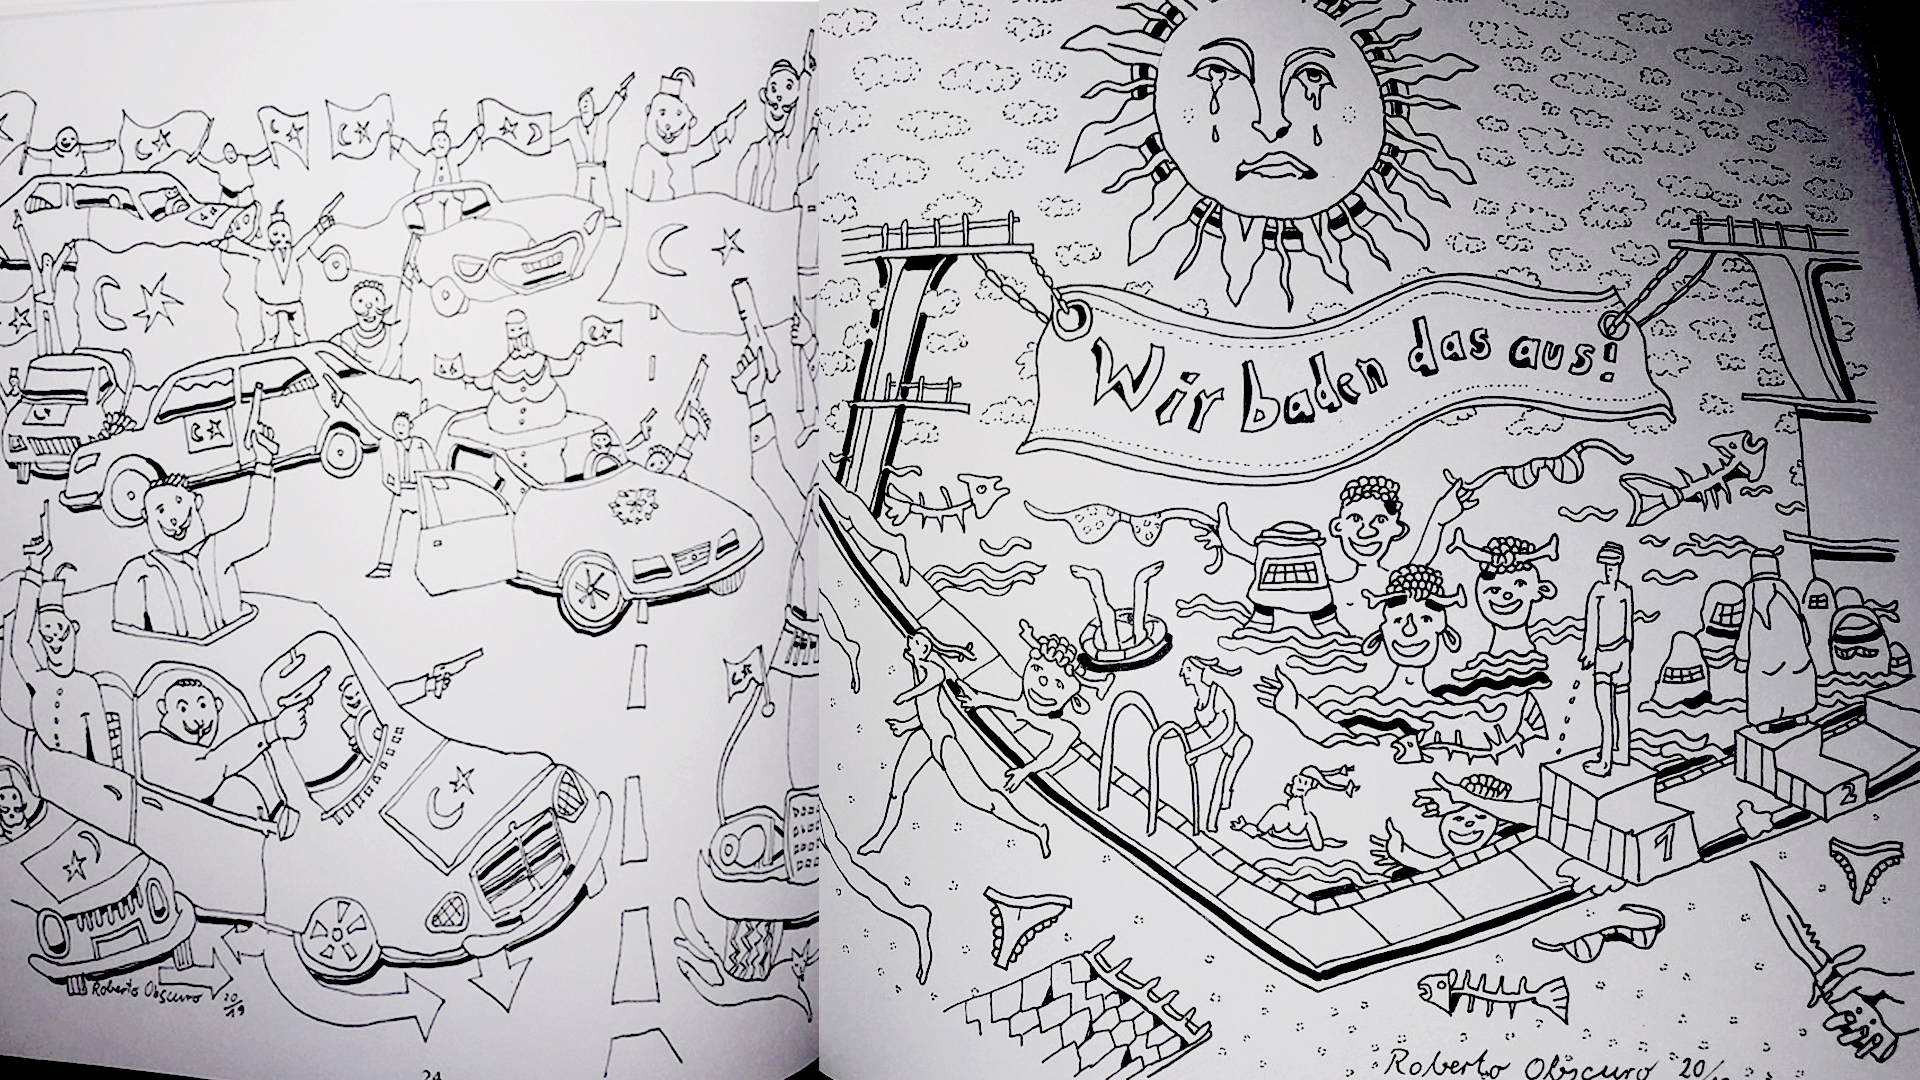 Roberto Obscuro 20
19
24
Wir baden das aus!
1
2
Roberto Obscuro 20/